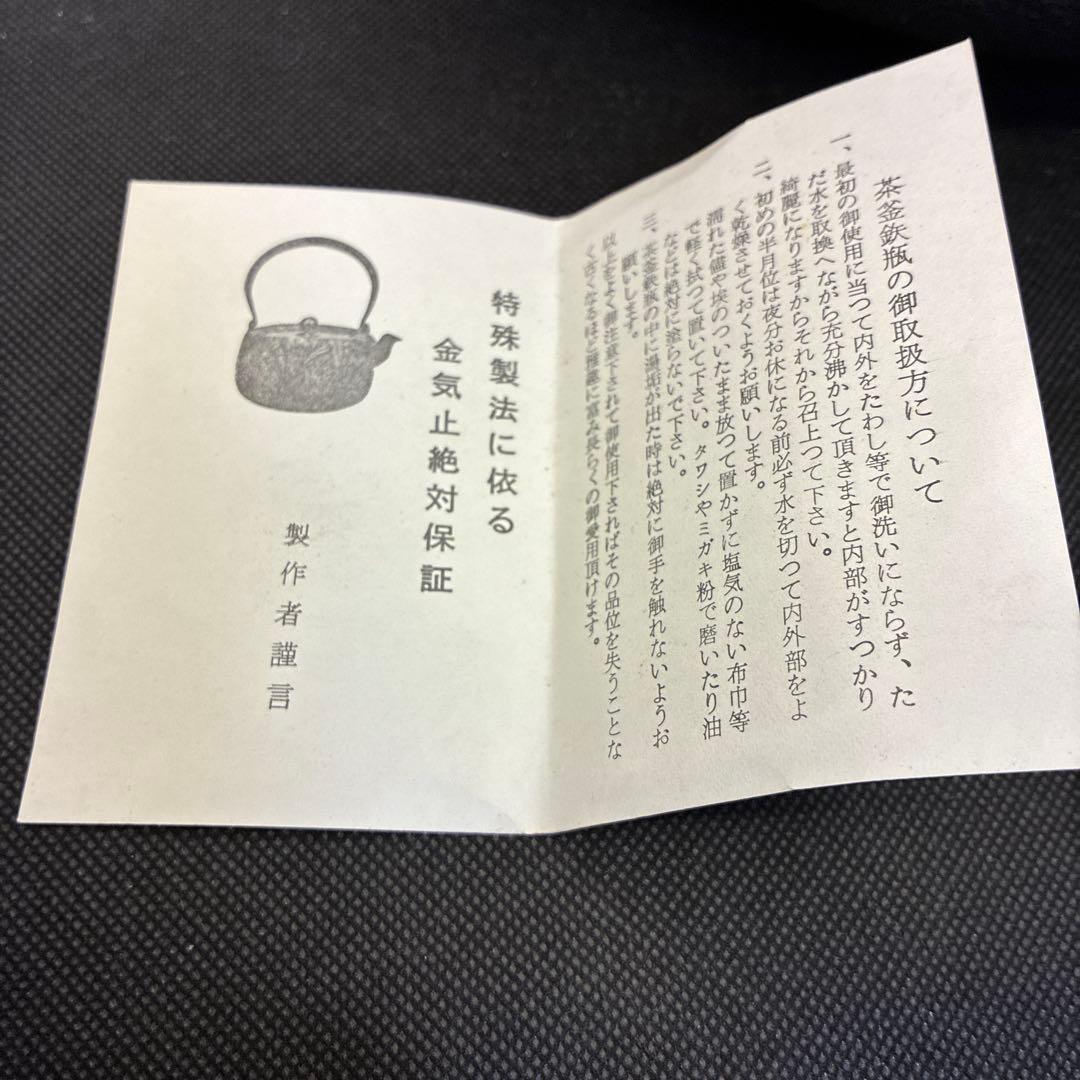 茶釜鉄瓶の御取扱方について
一、最初の御使用に当つて内外をたわし等で御洗いにならず、た
だ水を取換へながら充分沸かして頂きますと内部がすつかり
綺麗になりますからそれから召上つて下さい。
二、初めの半月位は夜分お休になる前必ず水を切つて内外部をよ
く乾燥させておくようお願いします。
濡れた儘や埃のついたまま放つて置かずに塩気のない布巾等
で軽く拭つて置いて下さい。タワシやミガキ粉で磨いたり油
などは絶対に塗らないで下さい。
三、茶釜鉄瓶の中に湯垢が出た時は絶対に御手を触れないようお
願いします。
以上をよく御注意下されて御使用下さればその品位を失うことな
く古くなるほど雅趣に富み長らくの御愛用頂けます。
特殊製法に依る
金気止絶対保証
製作者謹言